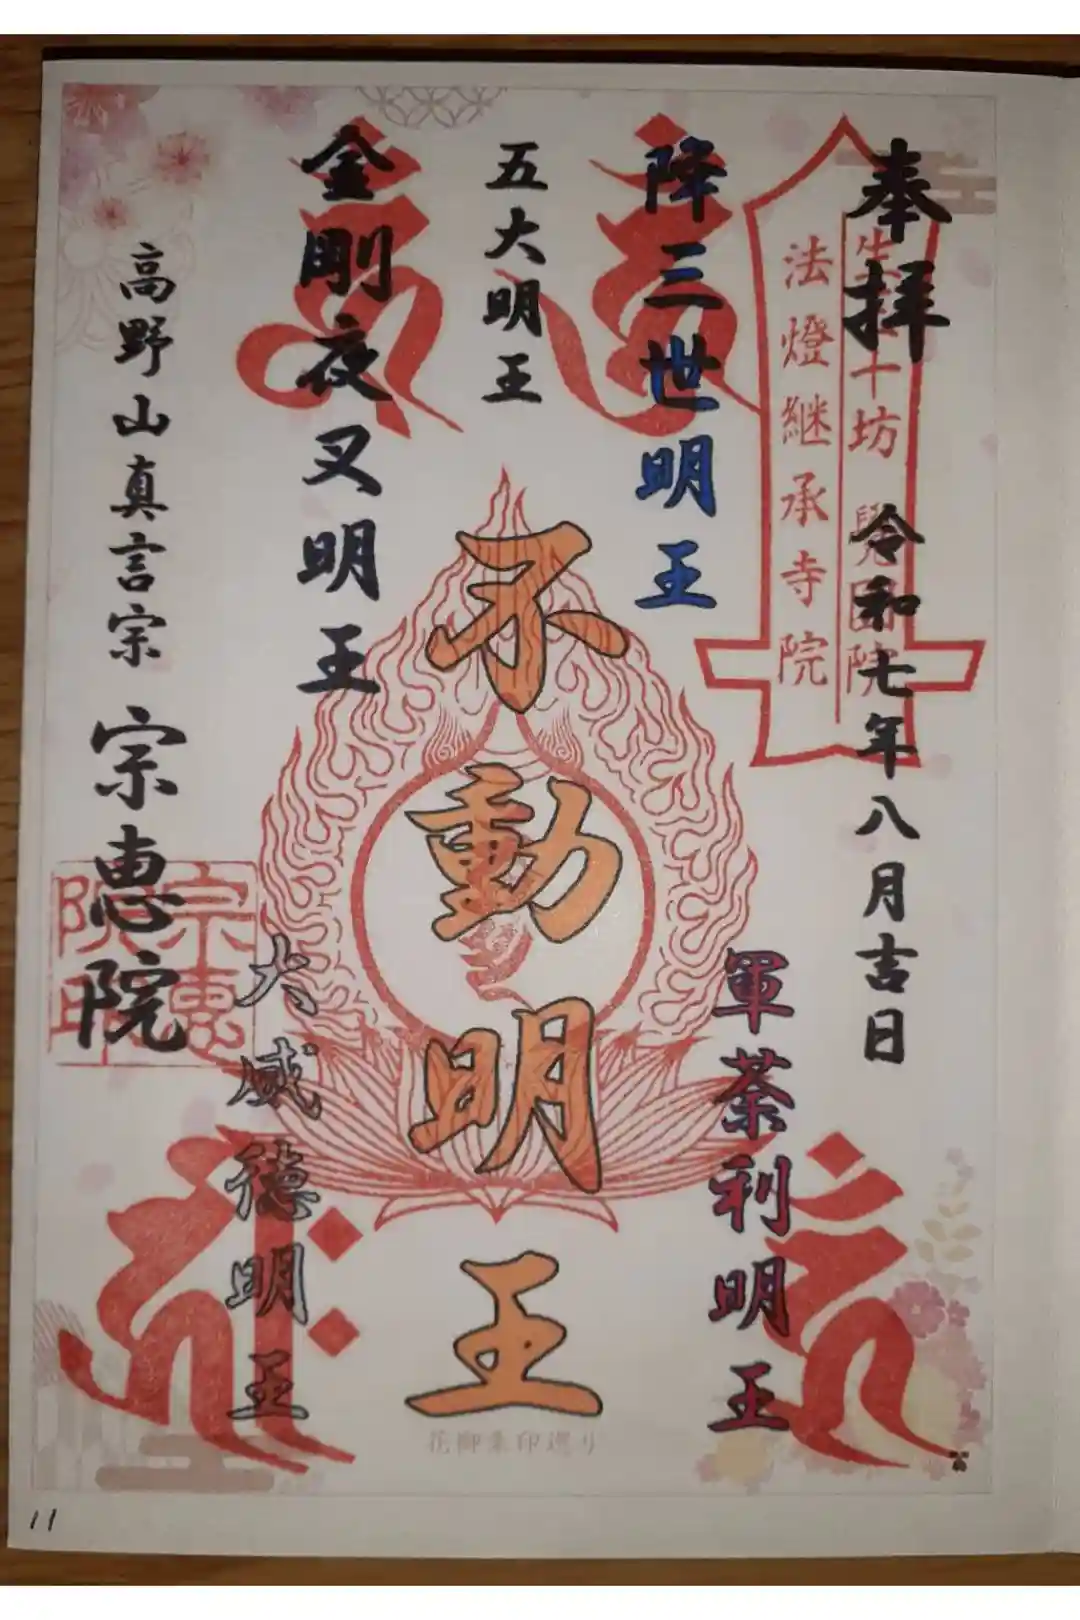 奉拝
令和七年八月吉日
十坊
法燈継承寺院
降三世明王
軍荼利明王
五大明王
不動明王
金剛夜叉明王
大威徳明王
高野山真言宗 宗恵院
宗恵
花御朱印巡り
11